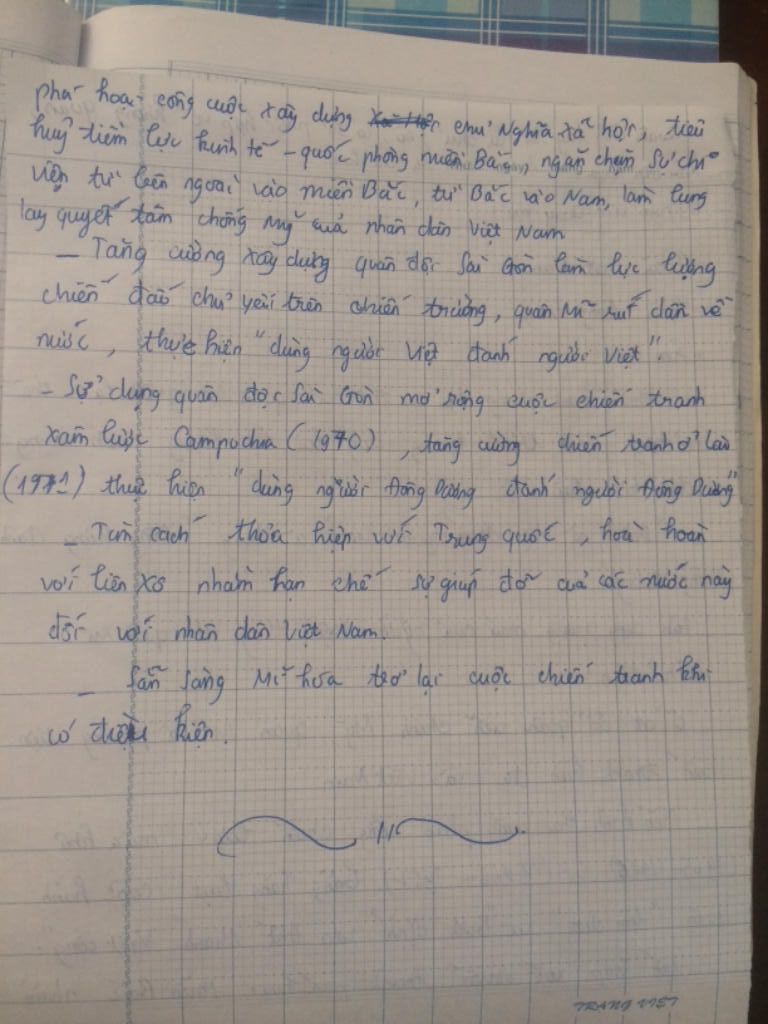 phá hoại công cuộc xây dựng chủ Nghĩa xã hội, tiêu
huỷ tiềm lực kinh tế - quốc phòng miền Bắc, ngăn chặn sự chi
viện từ bên ngoài vào miền Bắc, từ Bắc vào Nam, làm lung
lay quyết tâm chống Mỹ của nhân dân Việt Nam
- Tăng cường xây dựng quân đội Sài Gòn làm lực lượng
chiến đấu chủ yếu trên chiến trường, quân Mĩ rút dần về
nước, thực hiện "dùng người Việt đánh người Việt".
- Sử dụng quân đội Sài Gòn mở rộng cuộc chiến tranh
xâm lược Campuchia (1970), tăng cường chiến tranh ở Lào
(1971) thực hiện "dùng người Đông Dương đánh người Đông Dương"
- Tìm cách thỏa hiệp với Trung quốc, hoà hoãn
với liên xô nhằm hạn chế sự giúp đỡ của các nước này
đối với nhân dân Việt Nam.
- Sẵn sàng Mĩ hóa trở lại cuộc chiến tranh khi
có điều kiện.
TRANG VIET